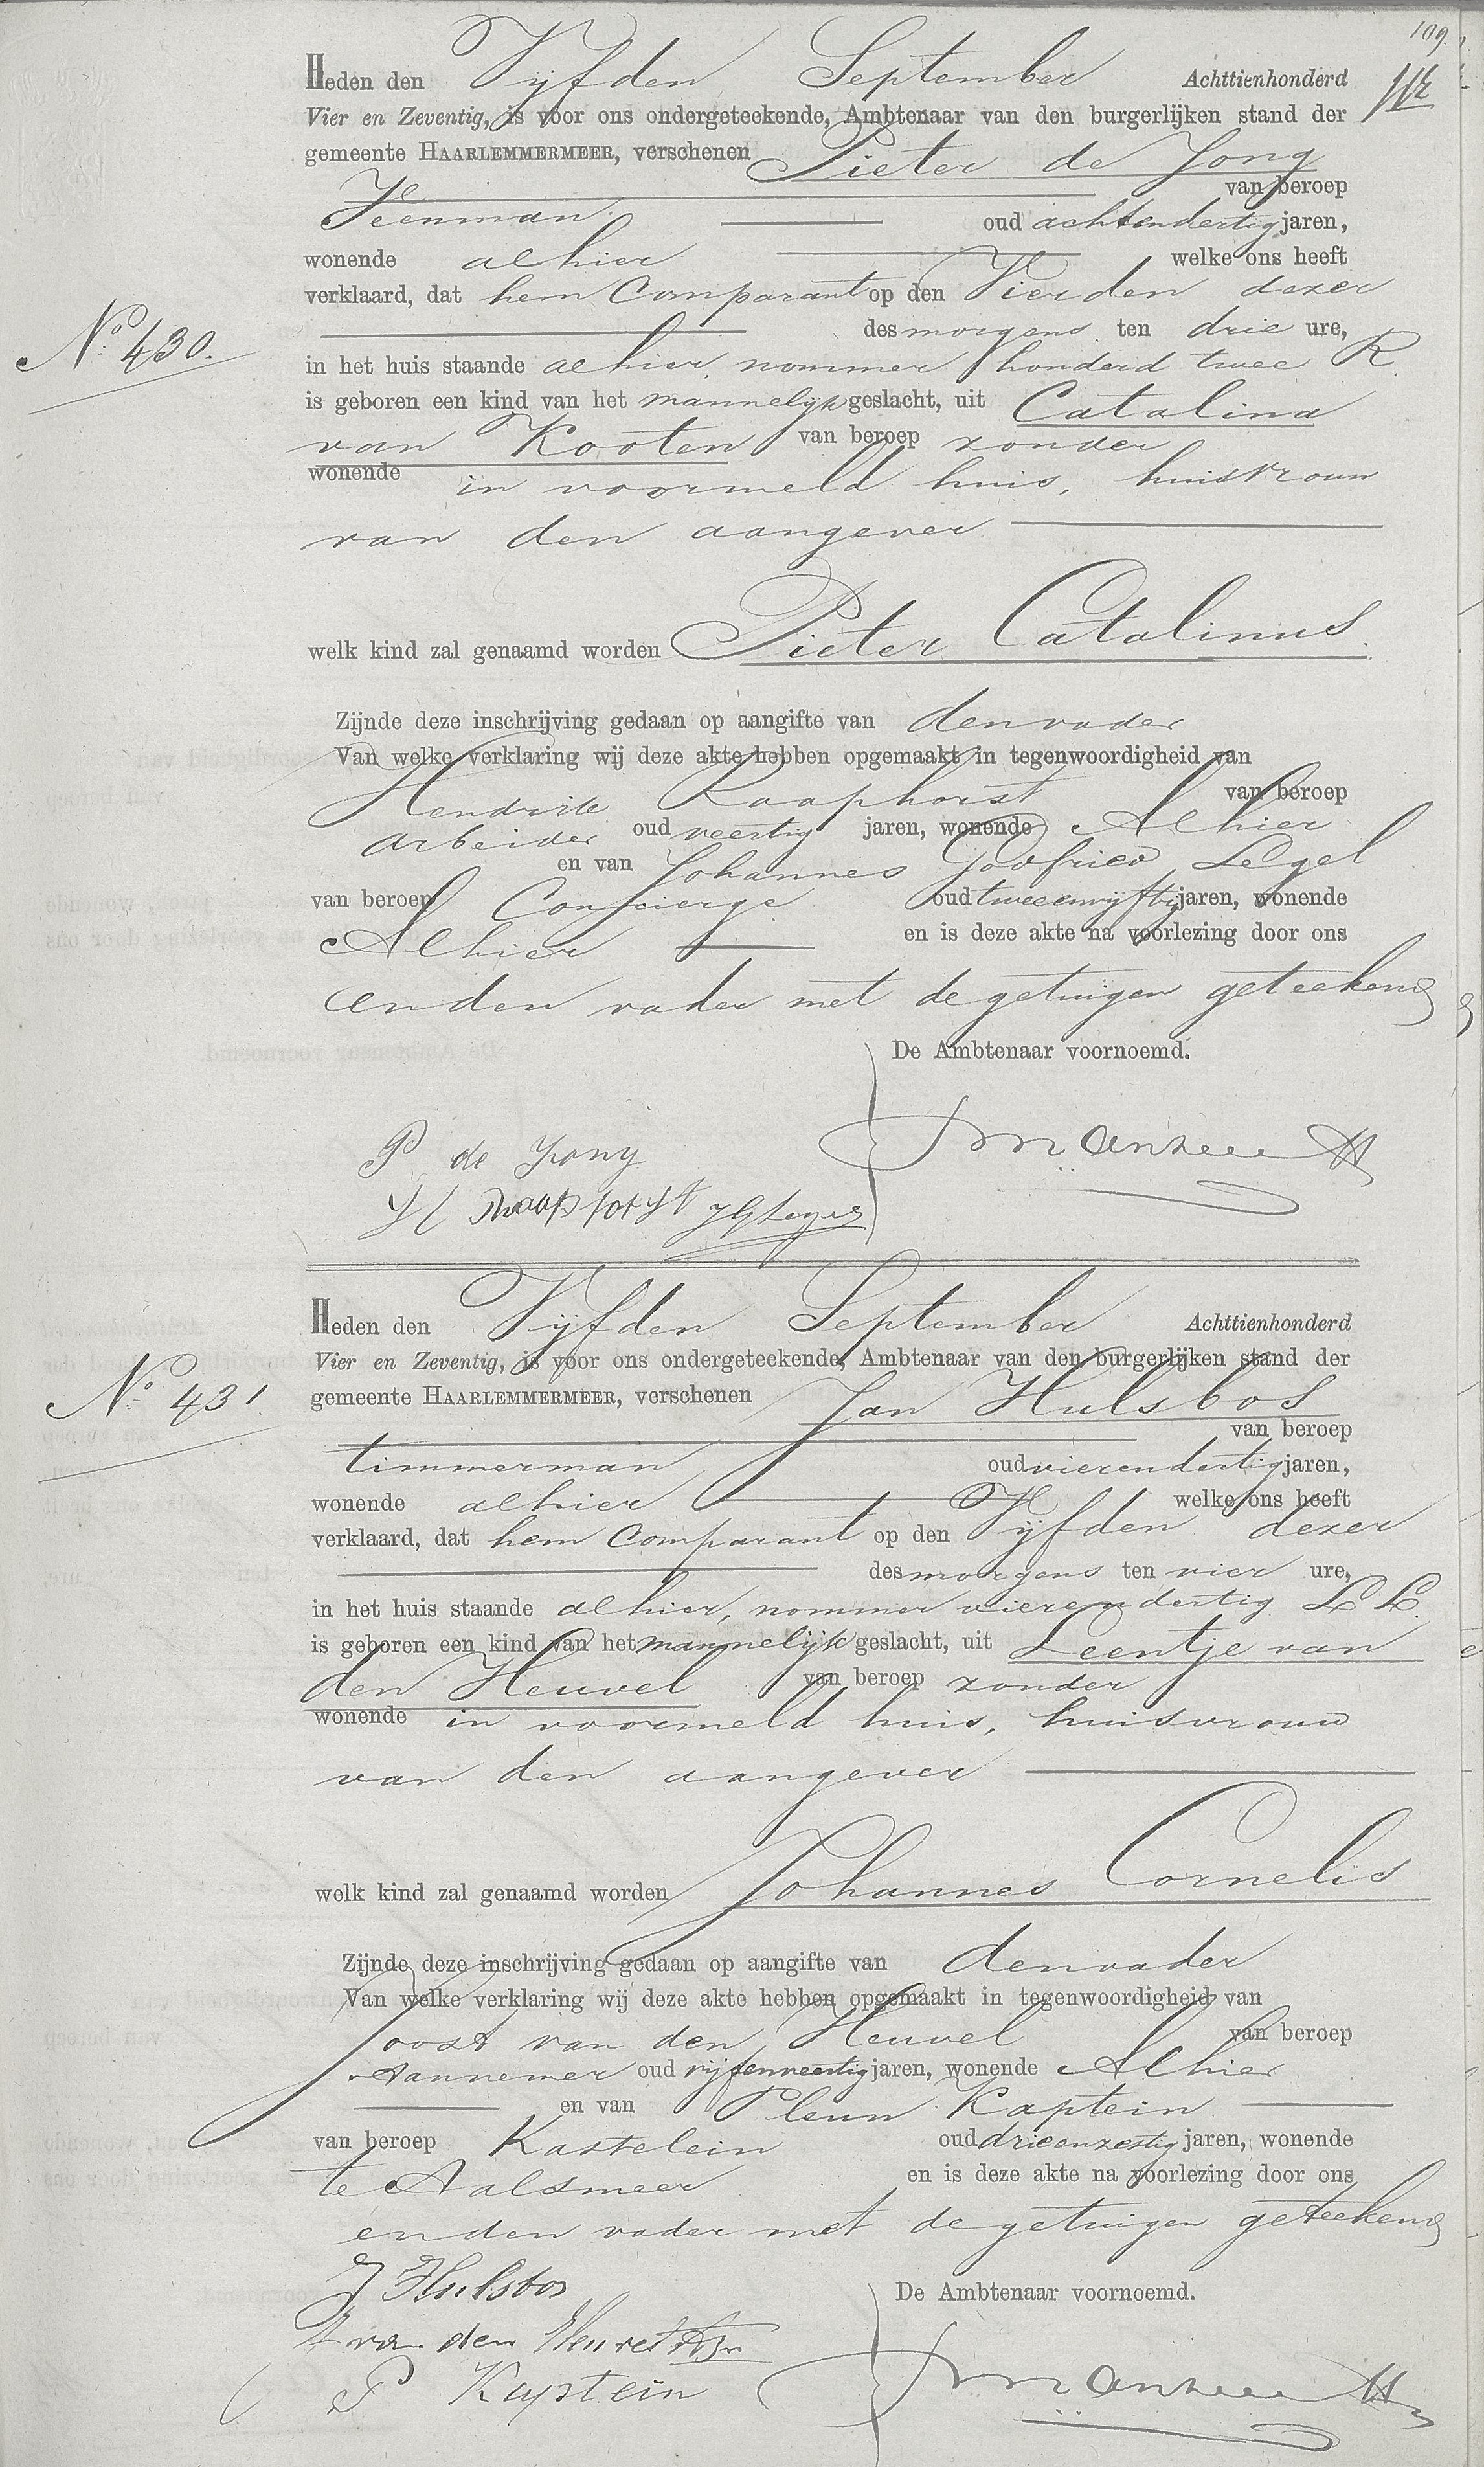 109.
Heden den Vijfden September Achttienhonderd
Vier en Zeventig, is voor ons ondergeteekende, Ambtenaar van den burgerlijken stand der
gemeente HAARLEMMERMEER, verschenen Pieter de Jong
van beroep
Veenman oud achtendertig jaren,
wonende alhier welke ons heeft
verklaard, dat hem Comparant op den Vierden dezer
des morgens ten drie ure,
No 430.
in het huis staande alhier, nommer honderd twee R.
is geboren een kind van het mannelijk geslacht, uit Catalina
van Kooten van beroep zonder
wonende in voormeld huis, huisvrouw
van den aangever
welk kind zal genaamd worden Pieter Catalinus.
Zijnde deze inschrijving gedaan op aangifte van den vader
Van welke verklaring wij deze akte hebben opgemaakt in tegenwoordigheid van
Hendrik Raaphorst van beroep
arbeider oud veertig jaren, wonende Alhier
en van Johannes Godfried Legel
van beroep Concierge oud tweeenvijftig jaren, wonende
Alhier en is deze akte na voorlezing door ons
en den vader met de getuigen geteekend
De Ambtenaar voornoemd.
P de Jong
H Raaphorst
Heden den Vijfden September Achttienhonderd
Vier en Zeventig, is voor ons ondergeteekende, Ambtenaar van den burgerlijken stand der
No 431.
gemeente HAARLEMMERMEER, verschenen Jan Hulsbos
van beroep
timmerman oud vierendertig jaren,
wonende alhier welke ons heeft
verklaard, dat hem Comparant op den Vijfden dezer
des morgens ten vier ure,
in het huis staande alhier, nommer vierendertig LL.
is geboren een kind van het mannelijk geslacht, uit Leentje van
den Heuvel van beroep zonder
wonende in voormeld huis, huisvrouw
van den aangever
welk kind zal genaamd worden Johannes Cornelis
Zijnde deze inschrijving gedaan op aangifte van den vader
Van welke verklaring wij deze akte hebben opgemaakt in tegenwoordigheid van
Joost van den Heuvel van beroep
Aannemer oud vijfenveertig jaren, wonende Alhier
en van Pleun Kaptein
van beroep Kastelein oud drieenzestig jaren, wonende
te Aalsmeer en is deze akte na voorlezing door ons
en den vader met de getuigen geteekend
J Hulsbos
De Ambtenaar voornoemd.
van den Heuvel
P Kaptein